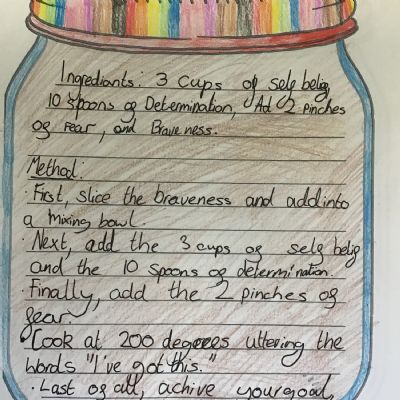 Ingredients: 3 cups of self belig
10 Spoons of Determination, Ad 2 pinches
of Fear, and Braveness.
Method:
· First, slice the braveness and add into
a mixing bowl.
· Next, add the 3 cups of self belig
and the 10 spoons of determination.
· Finally, add the 2 pinches of
fear.
· Cook at 200 degrees uttering the
words "I've got this."
· Last of all, achive your goal,